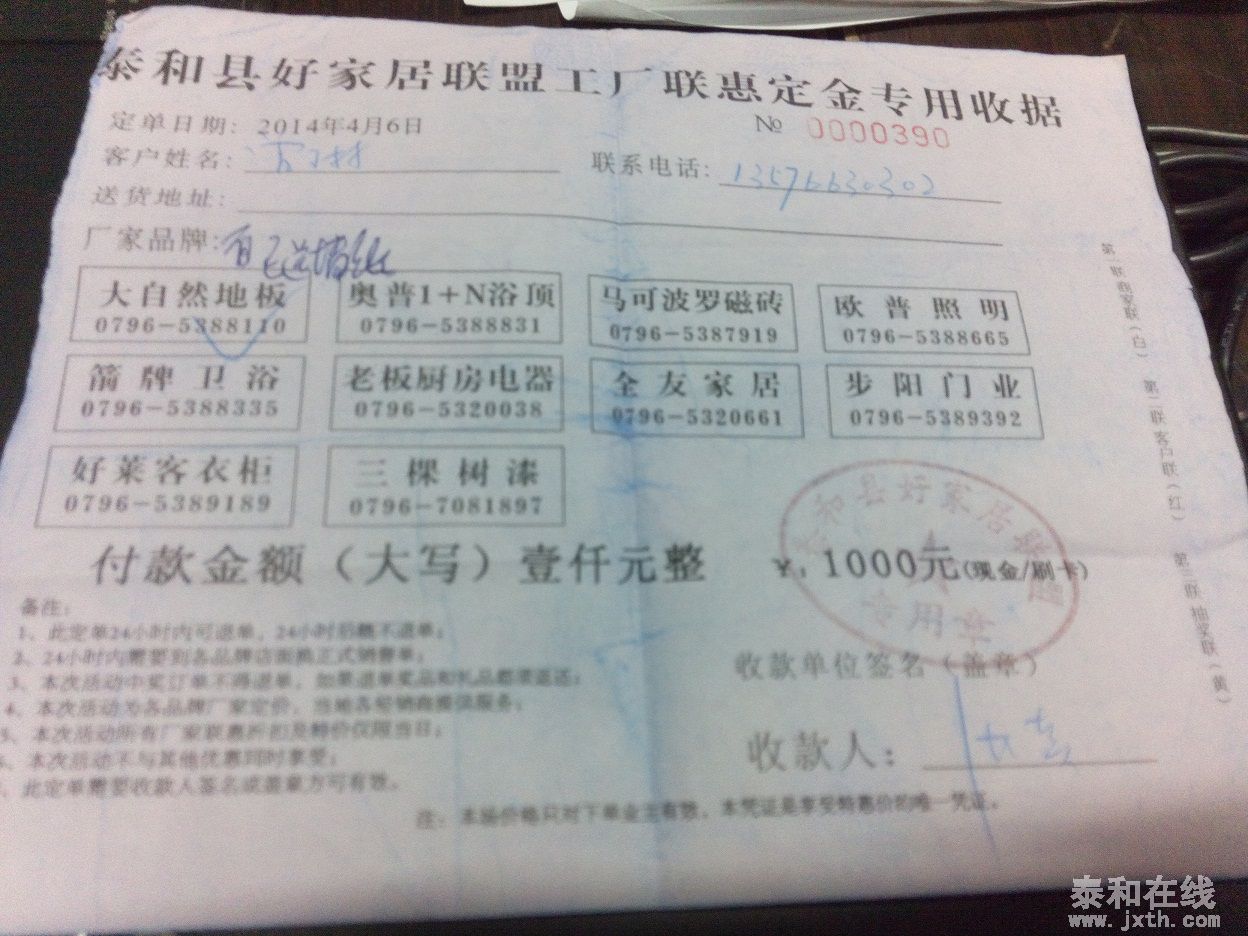 泰和县好家居联盟工厂联惠定金专用收据
定单日期: 2014年4月6日
№ 0000390
客户姓名:
联系电话: 13576630302
送货地址:
厂家品牌:
大自然地板
0796-5388110
奥普1+N浴顶
0796-5388831
马可波罗磁砖
0796-5387919
欧普照明
0796-5388665
箭牌卫浴
0796-5388335
老板厨房电器
0796-5320038
全友家居
0796-5320661
步阳门业
0796-5389392
好莱客衣柜
0796-5389189
三棵树漆
0796-7081897
付款金额（大写）壹仟元整
¥: 1000元(现金/刷卡)
泰和县好家居联盟
专用章
备注:
1、此定单24小时内可退单，24小时后概不退单;
2、24小时内需要到各品牌店面换正式销售单;
3、本次活动中奖订单不得退单，如果退单奖品和礼品都须返还;
4、本次活动为各品牌厂家定价，当地各经销商提供服务;
5、本次活动所有厂家联惠折扣及特价仅限当日;
、本次活动不与其他优惠同时享受;
、此定单需要收款人签名或盖章方可有效。
收款单位签名（盖章）
收款人:
注: 本场价格只对下单业主有效，本凭证是享受特惠价的唯一凭证。
第一联商家联(白) 第二联客户联(红) 第三联抽奖联(黄)
泰和在线
www.jxth.com